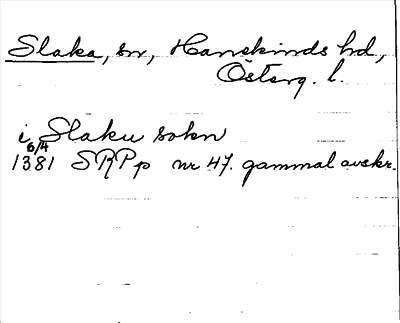 Slaka, sn, Hanekinds hd,
Österg. l.
i Slaku sokn
6/4
1381 SRPp nr 47. gammal avskr.